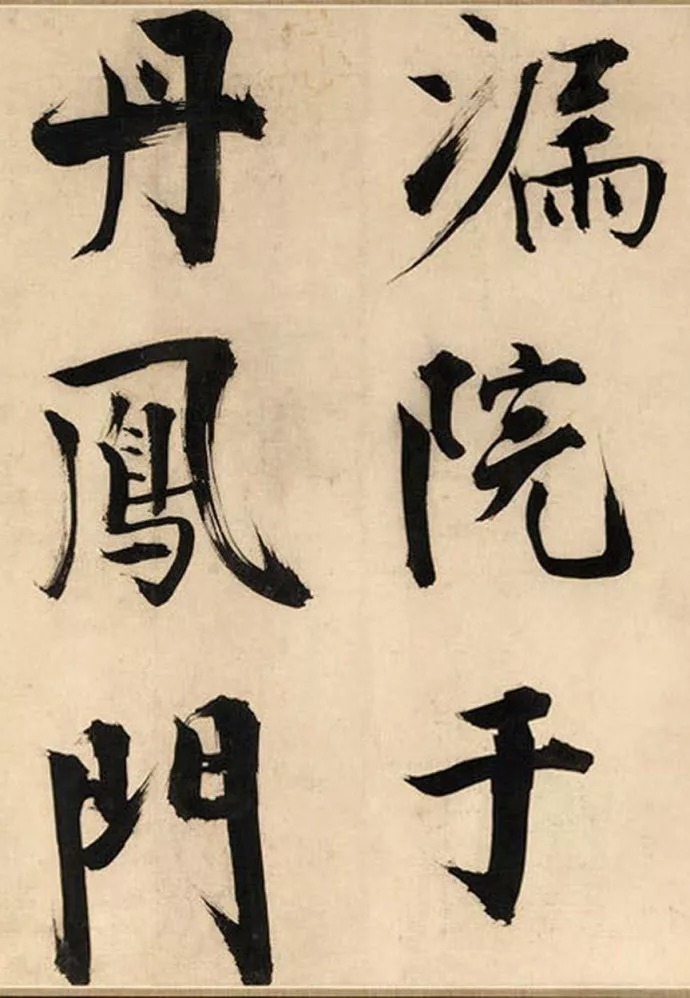 漏院于
丹鳳門